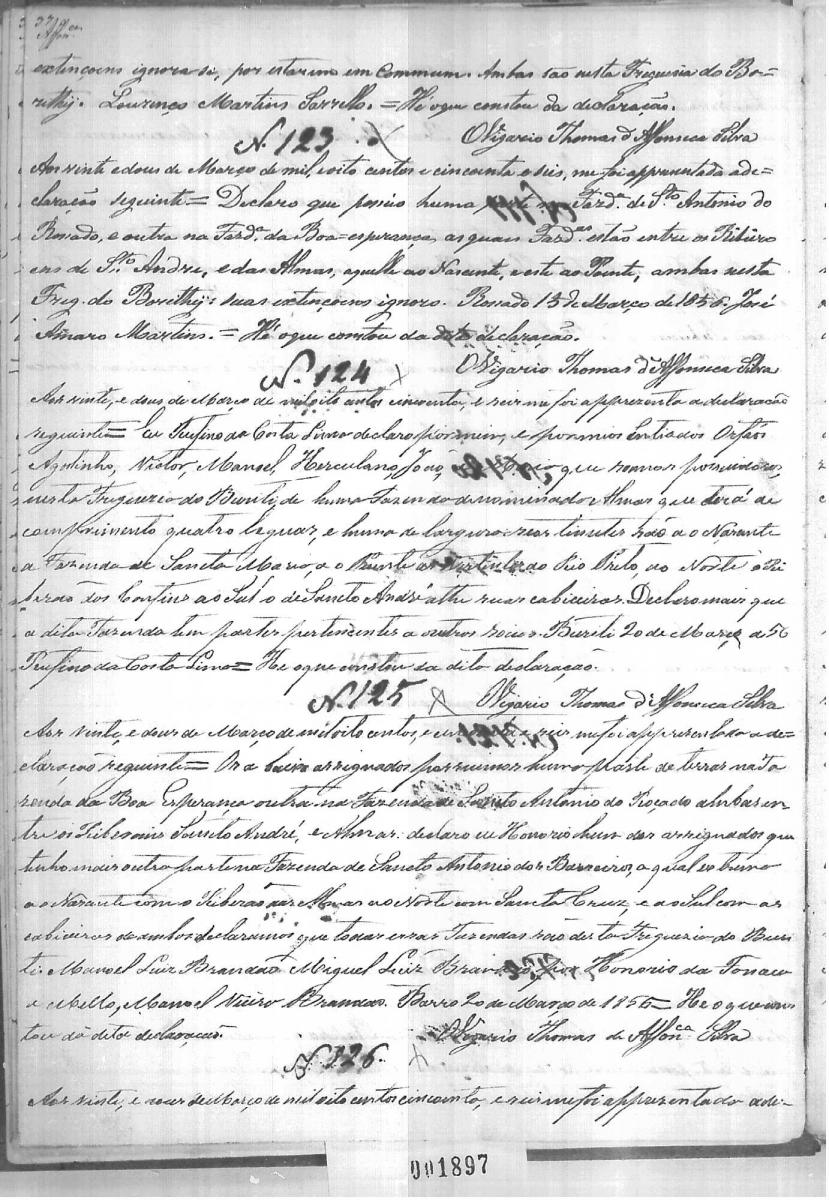 extençoens ignora-se, por estarimo em Commum. Ambas são nesta Freguesia do Bo=
rithy. Lourenço Martins Sarrello. = He oque constou da declaração.
N. 123. O Vigario Thomas d'Affonseca Silva
Aos vinte e dous de Março de mil, oito centos e cincoenta e seis, me foi appresentada a de=
claração seguinte = Declaro que possúo huma parte na Fazd.ª de S.to Antonio do
Rossado, e outra na Fazd.ª da Boa=esperança, as quaes Fazd.as estão entre os Ribeiro
ens de S.to Andre, e das Almas, aquelle ao Nascente, e este ao Poente, ambas nesta
Freg. do Borithy: suas extençoens ignoro. Rossado 15 de Março de 1856. José
Amaro Martins. = Hé oque constou da dita declaração.
N. 124 O Vigario Thomas d'Affonseca Silva
Aos vinte, e dous de Março de mil oito centos cincoenta, e seis me foi apprezenta a declaração
seguinte = Eu Rufino da Costa Lima declaro por mim, e por meos Entiados Orfãos
Agostinho, Victor, Manoel, Herculano, João, que somos possuidores,
nesta Freguezia do Buriti, de huma Fazenda denominada Almas que terá de
comprimento quatro leguas, e huma de largura: seos limites são ao Nacente
a Fazenda de Sancta Maria, ao Poente as Vertentes do Rio Preto, ao Norte o Ri
beirão dos Confins ao Sul o de Sancto André athe suas cabiceiras. Declaro mais que
a dita Fazenda tem partes pertencentes a outros socios. Buriti 20 de Março de 56
Rufino da Costa Lima = He o que constou da dita declaração.
N. 125 O Vigario Thomas d'Affonseca Silva
Aos vinte, e dous de Março de mil oito centos, e cincoenta e seis me foi appresentada a de=
claração seguinte = Os a baixo assignados possuimos huma parte de terras na Fa
zenda da Boa Esperança outra na Fazenda de Sancto Antonio do Roçado ambas en
tre os Ribeirois Sancto André, e Almas: declaro eu Honorio hum dos assignados que
tenho mais outra parte na Fazenda de Sancto Antonio dos Barreiros, a qual extrema
ao Nacente com o Ribeirão das Almas ao Norte com Sancta Cruz, e ao Sul com as
cabiceiras de ambos declaramos que todas essas Fazendas são desta Freguezia do Buri
ti. Manoel Luiz Brandão Miguel Luiz Brandão, Honorio da Fonceca
e Mello, Manoel Vieira Brandão. Barro 20 de Março de 1856 = He o que cons
tou da dita declaração. O Vigario Thomas de Affon.ca Silva
N. 126.
Aos vinte, e dous de Março de mil oito centos cincoenta, e seis me foi apprezentada a de=
001897